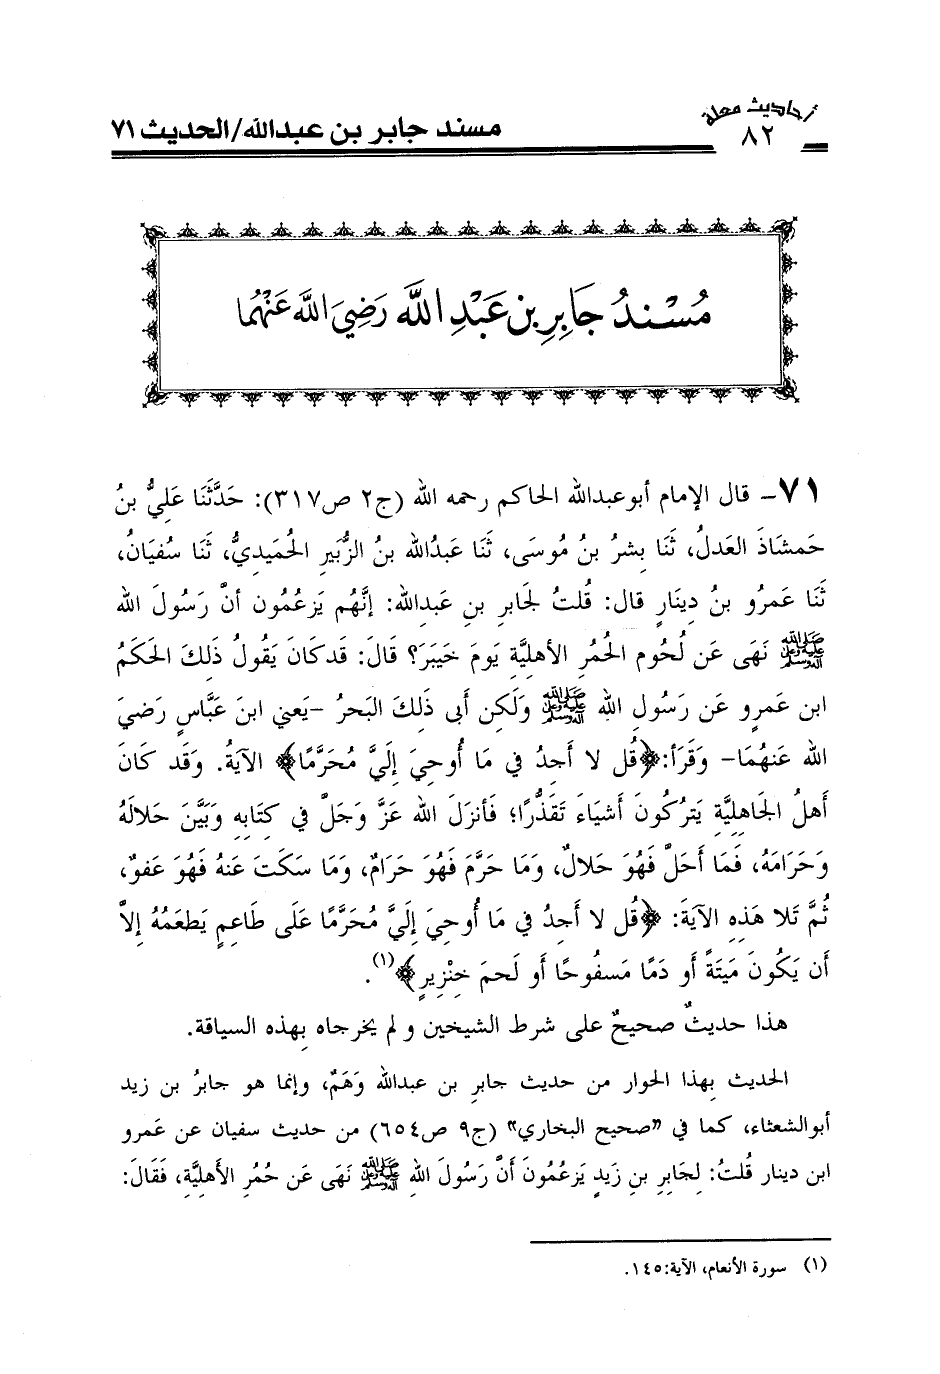 أحاديث معلة
٨٢
مسند جابر بن عبدالله/الحديث ٧١
مُسْندُ جَابِرِ بن عَبْدِ اللَّه رَضِيَ اللَّه عَنْهُما
٧١- قال الإمام أبو عبدالله الحاكم رحمه الله (ج٢ ص٣١٧): حَدَّثَنَا عَلِيُّ بنُ
حَمشَاذَ العَدلُ، ثَنَا بشرُ بنُ مُوسَى، ثَنَا عَبدُالله بنُ الزُّبَيرِ الحُمَيدِيُّ، ثَنَا سُفيَانُ،
ثَنَا عَمرُو بنُ دِينَارٍ قال: قُلتُ لجَابرِ بنِ عَبدِالله: إنَّهُم يَزعُمُون أنَّ رَسُولَ الله
ﷺ نَهَى عَن لُحُومِ الحُمُرِ الأهلِيَّةِ يَومَ خَيبَرَ؟ قَالَ: قَد كَانَ يَقُولُ ذَلِكَ الحَكَمُ
ابن عَمرٍو عَن رَسُولِ الله ﷺ وَلَكِن أبى ذَلِكَ البَحرُ -يَعني ابنَ عَبَّاسٍ رَضيَ
الله عَنهُمَا- وَقَرَأ: ﴿قُل لا أجدُ في مَا أُوحيَ إلَيَّ مُحَرَّمًا﴾ الآيةُ. وَقَد كَانَ
أهلُ الجَاهِليَّةِ يَترُكُونَ أشيَاءَ تَقَذُّرًا؛ فَأنزَلَ الله عَزَّ وَجَلَّ في كتَابِهِ وَبَيَّنَ حَلالَهُ
وَحَرَامَهُ، فَمَا أحَلَّ فَهُوَ حَلالٌ، وَمَا حَرَّمَ فَهُوَ حَرَامٌ، وَمَا سَكَتَ عَنهُ فَهُوَ عَفوٌ،
ثُمَّ تَلا هَذِهِ الآيَةَ: ﴿قُل لا أجدُ في مَا أُوحيَ إلَيَّ مُحَرَّمًا عَلَى طَاعِمٍ يَطعَمُهُ إلاَّ
أن يَكُونَ مَيتَةً أو دَمًا مَسفُوحًا أو لَحمَ خِنْزِيرٍ﴾(١).
هذا حديثٌ صحيحٌ على شرط الشيخين و لم يخرجاه بهذه السياقة.
الحديث بهذا الحوار من حديث جابر بن عبدالله وَهَمٌ، وإنما هو جابرُ بن زيد
أبوالشعثاء، كما في "صحيح البخاري" (ج٩ ص٦٥٤) من حديث سفيان عن عَمرو
ابن دينار قُلتُ: لِجَابِرِ بنِ زَيدٍ يَزعُمُونَ أنَّ رَسُولَ اللهِ ﷺ نَهَى عَن حُمُرِ الأهلِيَّةِ، فَقَالَ:
(١) سورة الأنعام، الآية:١٤٥.